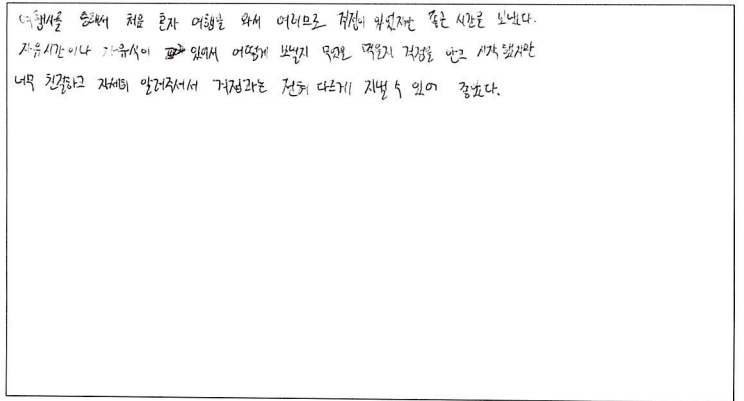 여행사를 통해서 처음 혼자 여행을 와서 여러므로 걱정이 있었지만 좋은 시간을 보냈다.
자유시간이나 자유식이 있어서 어떻게 보낼지 무엇을 먹을지 걱정을 안고 시작했지만
너무 친절하고 자세히 알려주셔서 걱정과는 전혀 다르게 지낼 수 있어 좋았다.